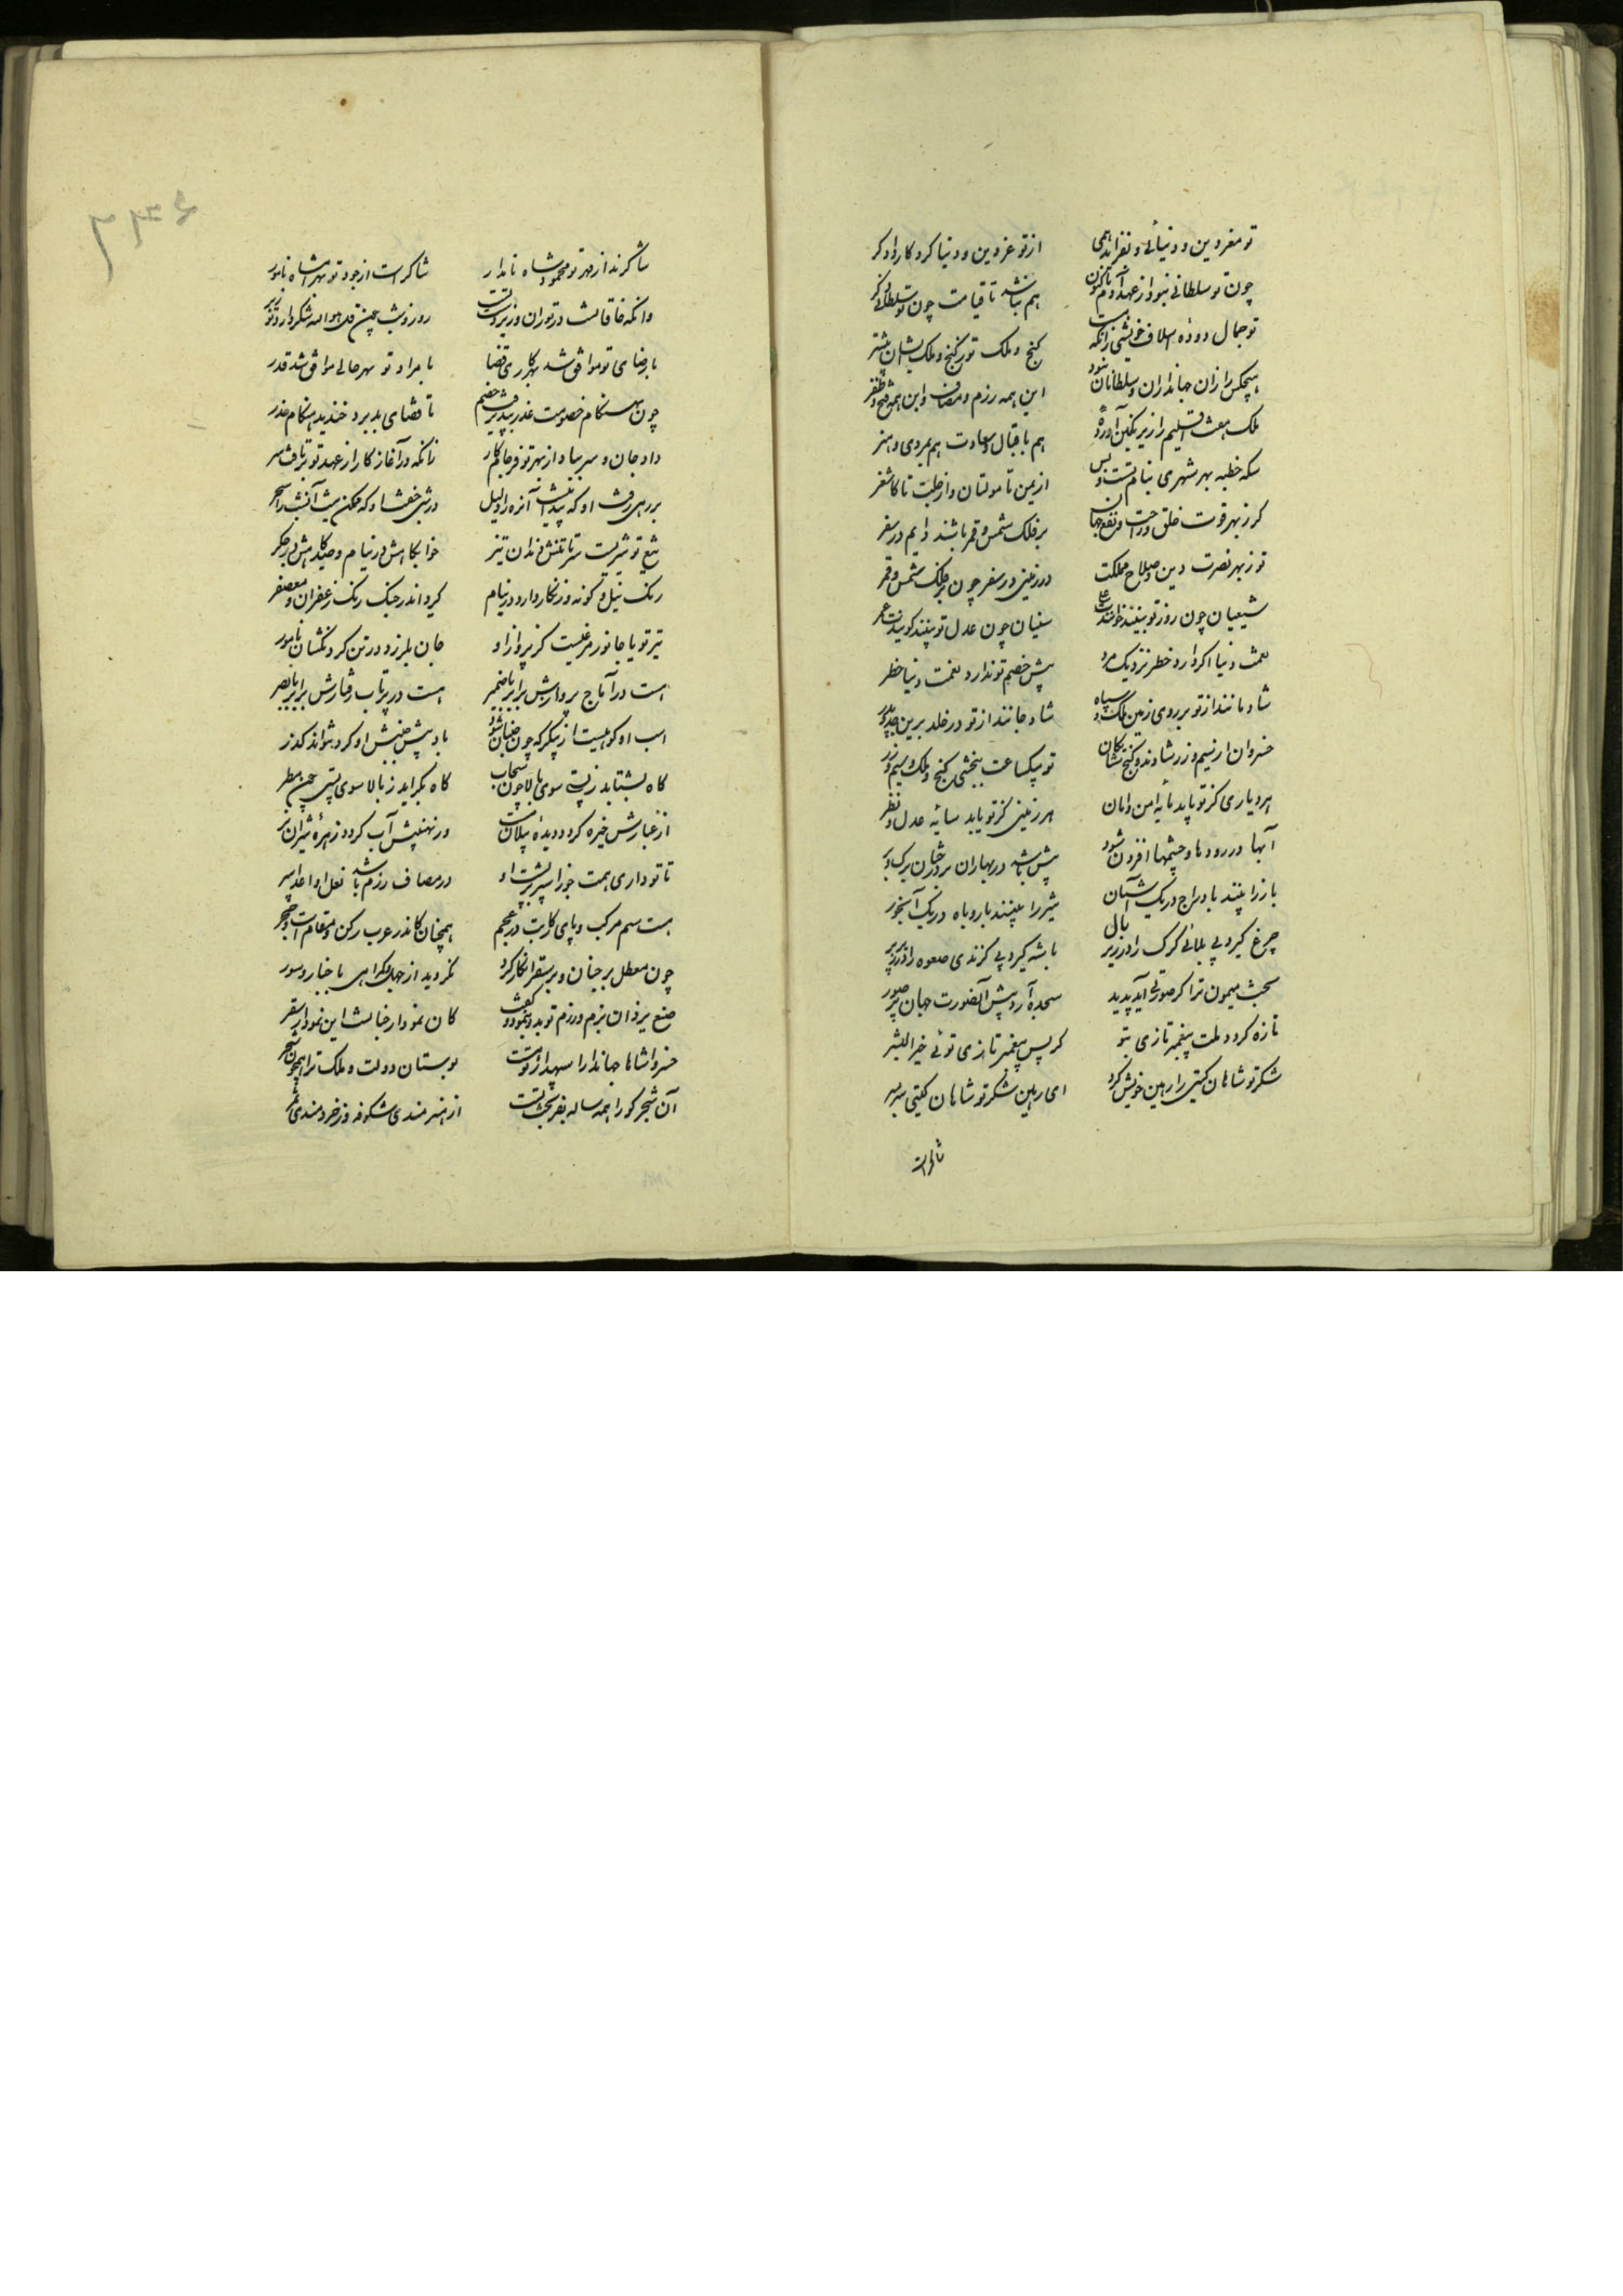 تو مغر دین و دنیائی و نفزاید همی از تو عز دین و دنیا کردکار دادکر
چون تو سلطانی نبود از عهد آدم تا کنون هم نباشد تا قیامت چون تو سلطانی دکر
تو جمال دوده اسلاف خویشی زانکه هست کنج و ملک تو ز کنج و ملک ایشان بیشتر
هیچکس را زان جهانداران و سلطانان نبود این همه رزم و مصاف و این همه فتح و ظفر
ملک هفت اقلیم را زیر نکین آورده هم باقبال و سعادت هم بمردی و هنر
سکه خطبه بهر شهری بنام تست و بس از یمن تا مولتان و از حلب تا کاشغر
کر ز بهر قوت خلق و راحت و نفع جهان بر فلک شمس و قمر باشند دایم در سفر
تو ز بهر نصرت دین و صلاح مملکت در زمینی در سفر چون بر فلک شمس و قمر
شیعیان چون روز تو بینند خوانندت علی سنیان چون عدل تو بینند کویندت عمر
نعمت دنیا اکر دارد خطر نزدیک مرد پیش خصم تو ندارد نعمت دنیا خطر
شادمانند از تو بر روی زمین ملک و سپاه شاد جانند از تو در خلد برین جد و پدر
خسروان از سیم و زر شادند و کنج شایکان تو بیکساعت ببخشی کنج و ملک و سیم و زر
هر دیاری کز تو یابد مایه امن و امان هر زمینی کز تو یابد سایه عدل و نظر
آبها در رودها و چشمها افزون شود بیش باشد در بهاران بر درختان برک و بر
باز را بینند با دراج در یک آشیان شیر را بینند با روباه در یک آبخور
چرغ کیرد بی بلائی کرک را در زیر بال باشه کیرد بی کزندی صعوه را در زیر پر
بخت میمون ترا کر صورتی آید پدید سجده آرد پیش آنصورت جهان پر صور
تازه کردد ملت پیغمبر تازی بتو کر پس پیغمبر تازی توئی خیر البشر
شکر تو شاهان کیتی را رهین خویش کرد ای رهین شکر تو شاهان کیتی سربسر
شاکرند
شاکرند از مهر تو محمود شاه نامدار شاکرست از جود تو بهرامشاه نامور
وانکه خاقانست در توران و زیر دست تست روز و شب
با رضای تو موافق شد بهر کاری قضا با مراد تو بهر حالی موافق شد قدر
چون بهنکام خصومت عذر بپذیرفت خصم
داد جان و سر بباد از بهر تو فرجام کار زانکه در آغاز کار از عهد تو برتافت سر
تیغ تو شیریست سرتاسر تنش دندان تیز خوابکاهش در نیام و صیدکاهش در جکر
رنک نیل و کونه زنکار دارد در نیام کیرد اندر جنک رنک زعفران و معصفر
تیر تو یا جانور مرغیست کز پرواز او جان بلرزد در تن کردنکشان نامور
هست در آماج پروازش برابر با ضمیر هست در پرتاب رفتارش برابر با بصر
اسب او کوهیست از پیکر که چون جنبان شود باد پیش جنبش او کرد نتواند کذر
کاه بشتابد ز پستی سوی بالا چون سحاب کاه بکراید ز بالا سوی پستی چون مطر
از غبارش خیره کردد دیده پیلان مست وز نهیبش آب کردد زهره شیران نر
تا تو داری همت خود را سپر بر پشت او در مصاف رزم باشد نعل او اعدا سپر
هست سم مرکب و پای رکابت در عجم همچنان کاندر عرب رکن و مقام است و حجر
چون معطل بر جنان و بر سقر انکار کرد نکروید از جهل و کمراهی باخبار و سور
صنع یزدان بزم و رزم تو بدو بنمود و کفت کان نمودار جنانست این نمودار سقر
خسروا شاها جهاندارا سپهدارا توئیست بوستان دولت و ملک ترا همچون شجر
آن شجر کو را همه ساله بفر بخت تست از هنرمندی شکوفه وز خردمندی ثمر